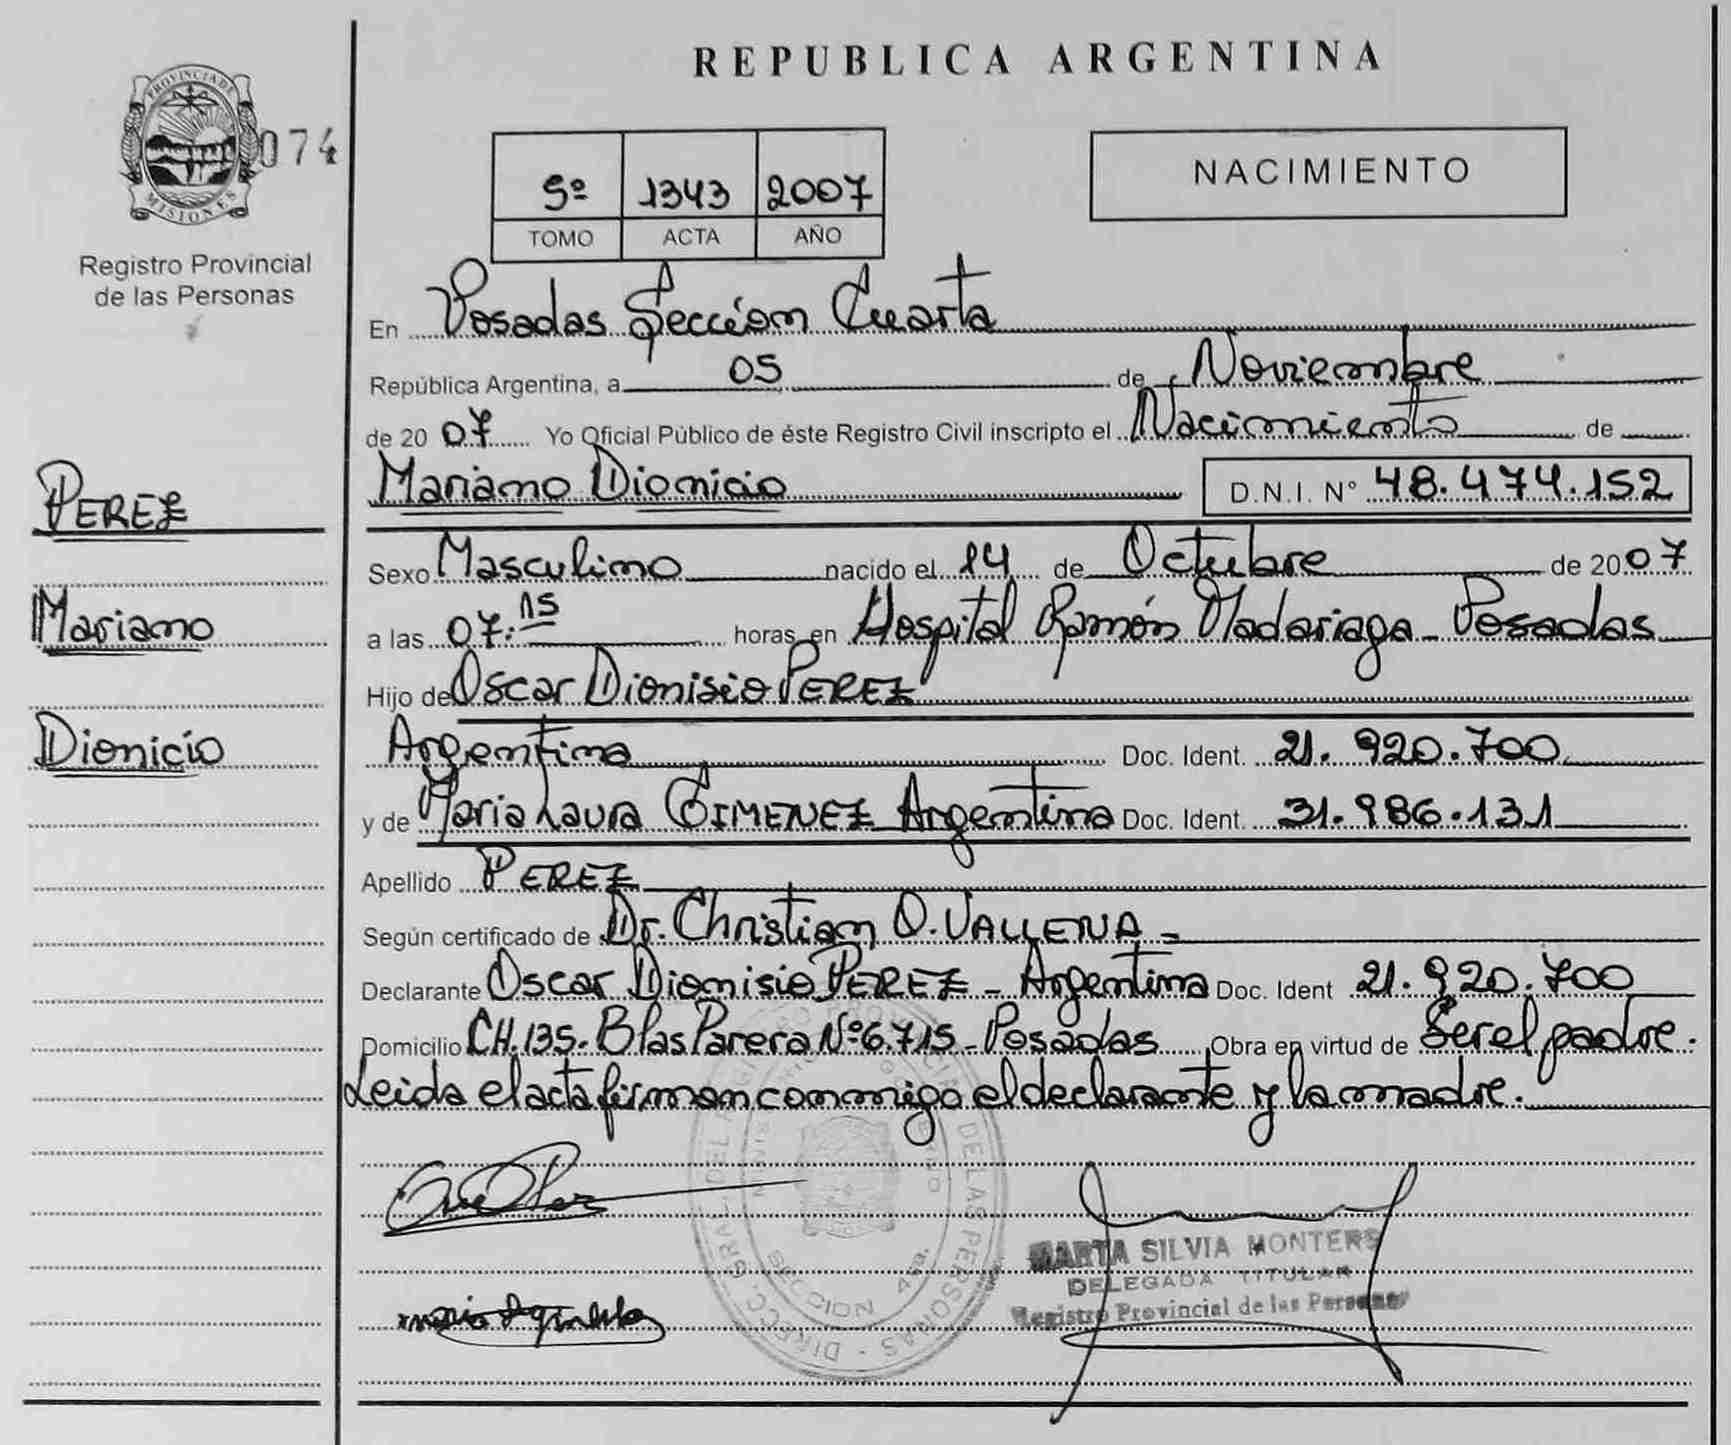 REPUBLICA ARGENTINA
PROVINCIA DE
MISIONES
074
Registro Provincial
de las Personas
5º 1343 2007
TOMO ACTA AÑO
NACIMIENTO
En Posadas Sección Cuarta
República Argentina, a 05 de Noviembre
de 20 07 Yo Oficial Público de éste Registro Civil inscripto el Nacimiento de
Mariano Dionicio D.N.I. N° 48.474.152
PEREZ
Mariano
Dionicio
Sexo Masculino nacido el 14 de Octubre de 20 07
a las 07:15 horas en Hospital Ramón Madariaga - Posadas
Hijo de Oscar Dionisio PEREZ
Argentina Doc. Ident. 21.920.700
y de Maria Laura GIMENEZ Argentina Doc. Ident. 31.986.131
Apellido PEREZ
Según certificado de Dr. Christian O. VALLENA -
Declarante Oscar Dionisio PEREZ - Argentina Doc. Ident 21.920.700
Domicilio CH.135. Blas Parera Nº 6.715 - Posadas Obra en virtud de Ser el padre.
Leida el acta firman conmigo el declarante y la madre.
MARTA SILVIA MONTERS
DELEGADA TITULAR
Registro Provincial de las Personas
DIRECC. GRAL. DEL REGISTRO PROVINCIAL DE LAS PERSONAS
SECCION 4ta.